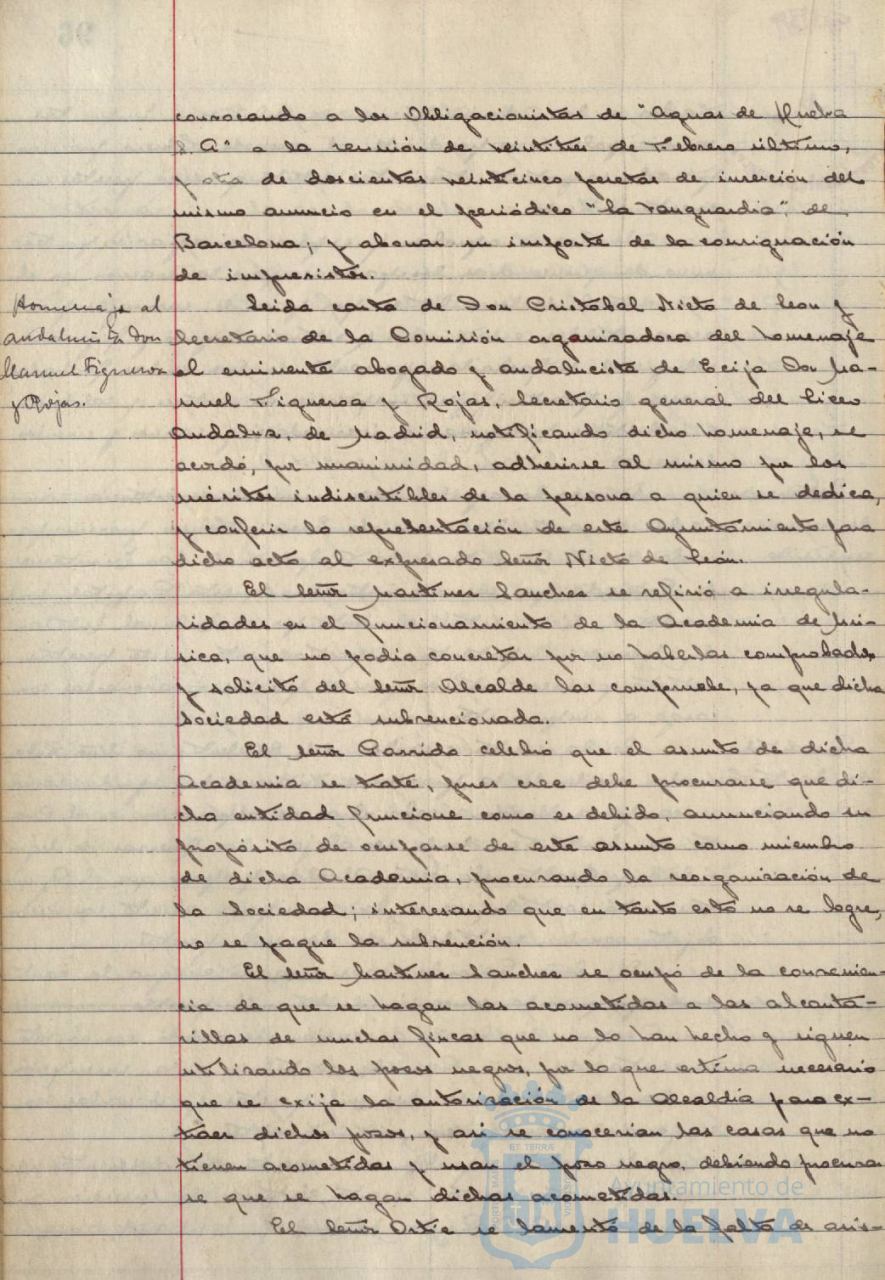 convocando a los Obligacionistas de "Aguas de Huelva
S. A" a la reunión de veintitres de Febrero último,
y otra de doscientas veinticinco pesetas de inserción del
mismo anuncio en el periódico "La Vanguardia", de
Barcelona; y abonar su importe de la consignación
de imprevistos.
Homenaje al
andalucista Don
Manuel Figueroa
y Rojas.
Leida carta de Don Cristóbal Nieto de Leon y
Secretario de la Comisión organizadora del homenaje
al eminente abogado y andalucista de Ecija Don Ma-
nuel Figueroa y Rojas, Secretario general del Liceo
Andaluz, de Madrid, notificando dicho homenaje, se
acordó, por unanimidad, adherirse al mismo por los
méritos indiscutibles de la persona a quien se dedica,
y conferir la representación de este Ayuntamiento para
dicho acto al expresado Señor Nieto de León.
El Señor Martinez Sanchez se refirió a irregula-
ridades en el funcionamiento de la Academia de Mú-
sica, que no podia concretar por no haberlas comprobado,
y solicitó del Señor Alcalde las compruebe, ya que dicha
Sociedad está subvencionada.
El Señor Garrido celebró que el asunto de dicha
Academia se trate, pues cree debe procurarse que di-
cha entidad funcione como es debido, anunciando su
propósito de ocuparse de este asunto como miembro
de dicha Academia, procurando la reorganización de
la Sociedad; interesando que en tanto esto no se logre,
no se pague la subvención.
El Señor Martinez Sanchez se ocupó de la convenien-
cia de que se hagan las acometidas a las alcanta-
rillas de muchas fincas que no lo han hecho y siguen
utilizando los pozos negros, por lo que estima necesario
que se exija la autorización de la Alcaldía para ex-
traer dichos pozos, y asi se conocerian las casas que no
tienen acometidas y usan el pozo negro, debiendo procurar
se que se hagan dichas acometidas.
El Señor Ortiz se lamentó de la falta de asis-
Ayuntamiento de
HUELVA